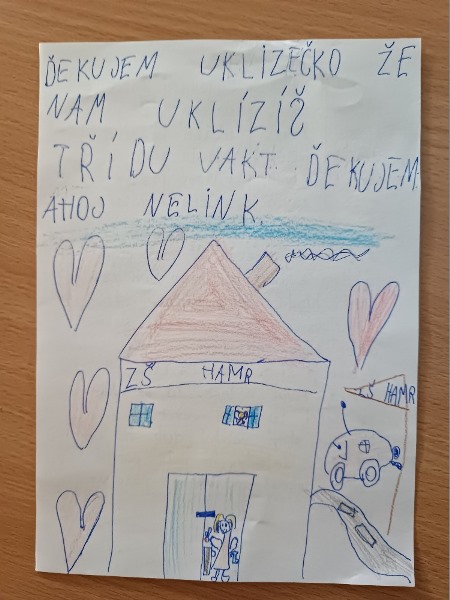 ĎEKUJEM UKLÍZEČKO ŽE
NAM UKLÍZÍŠ
TŘÍDU VAKT. ĎEKUJEM.
AHOJ NELINK.
ZŠ HAMR
ZŠ HAMR